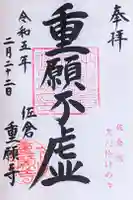 奉拝
重願不虚
令和五年
二月二十二日
佐倉
重願寺